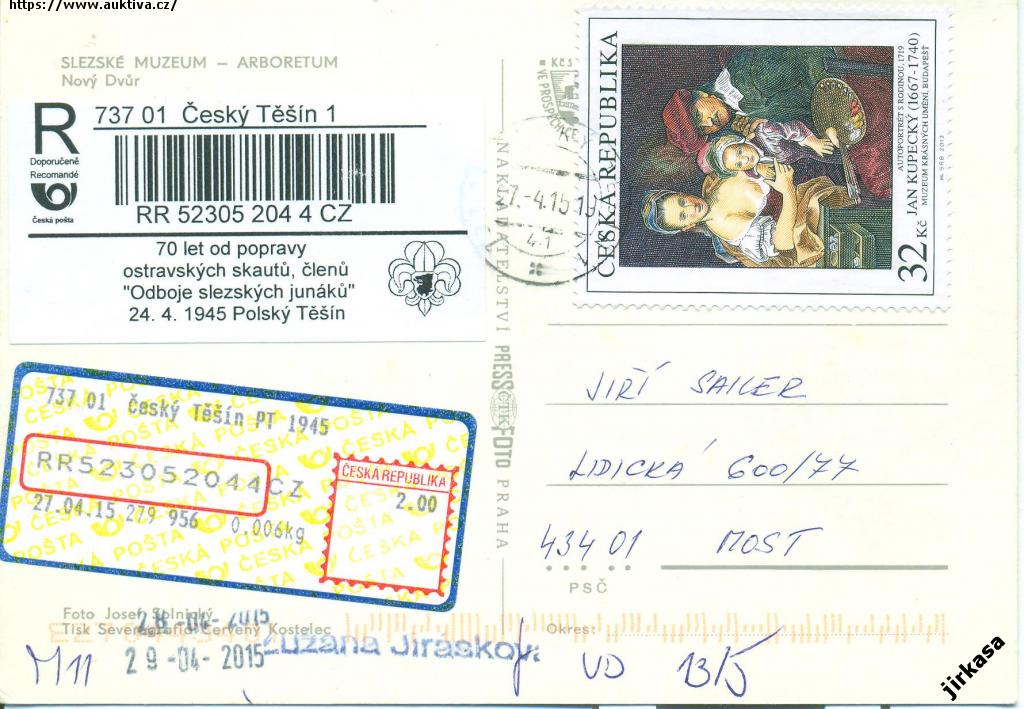 https://www.auktiva.cz/
SLEZSKÉ MUZEUM – ARBORETUM
Nový Dvůr
R
Doporučeně
Recomandé
Česká pošta
737 01 Český Těšín 1
RR 52305 204 4 CZ
70 let od popravy
ostravských skautů, členů
"Odboje slezských junáků"
24. 4. 1945 Polský Těšín
737 01 Český Těšín PT 1945
RR523052044CZ
27.04.15 279 956 0,006kg
ČESKÁ REPUBLIKA
2.00
ČESKÁ POŠTA
Foto Josef Solnický
Tisk Severografia Červený Kostelec
28-04-2015
29-04-2015
Zuzana Jirásková
M11
NAKLADATELSTVÍ PRESSFOTO PRAHA
ČTK
Kčs
VE PROSPĚCH
7.-4.15 19
41
ČESKÁ REPUBLIKA
32 Kč
JAN KUPECKÝ (1667-1740)
AUTOPORTRÉT S RODINOU, 1719
MUZEUM KRÁSNÝCH UMĚNÍ, BUDAPEŠŤ
M. SRB 2012
JIŘÍ SAILER
LIDICKÁ 600/77
434 01 MOST
PSČ
Okres:
VD 13/5
jirkasa